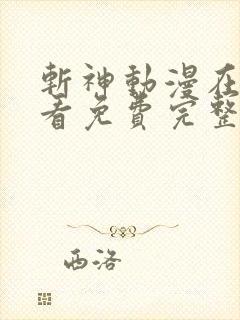 斬神動漫在
看免費完整
西洛